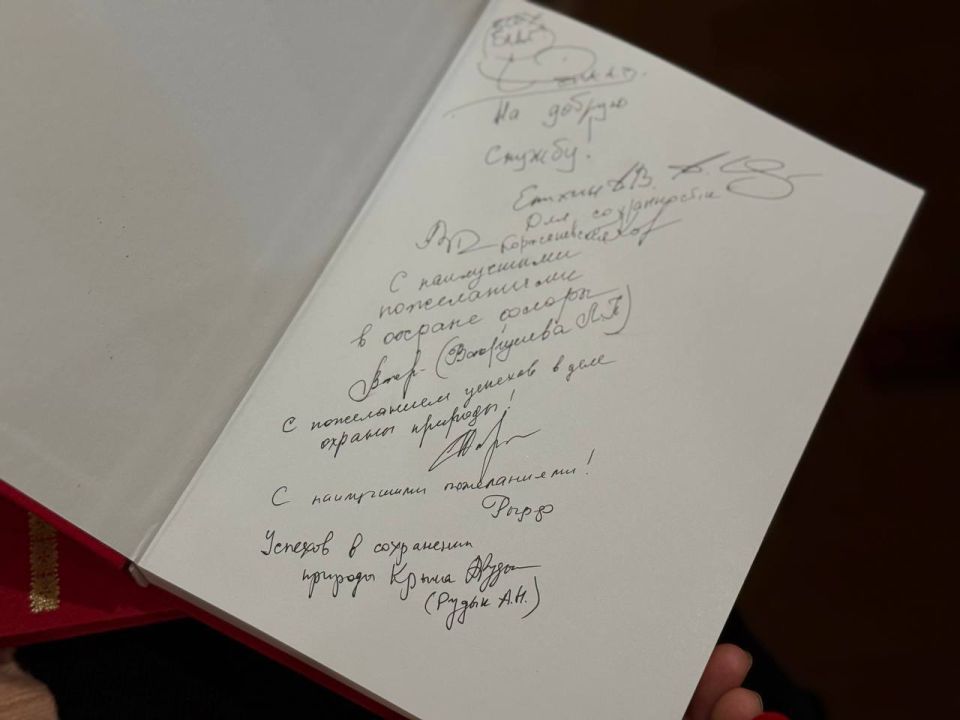 На добрую
службу!
Епихин А.В.
Для сохранности
С наилучшими
пожеланиями
в охране флоры
(Вахрушева Л.П)
С пожеланием успехов в деле
охраны природы!
С наилучшими пожеланиями!
Успехов в сохранении
природы Крыма
(Рудык А.Н.)